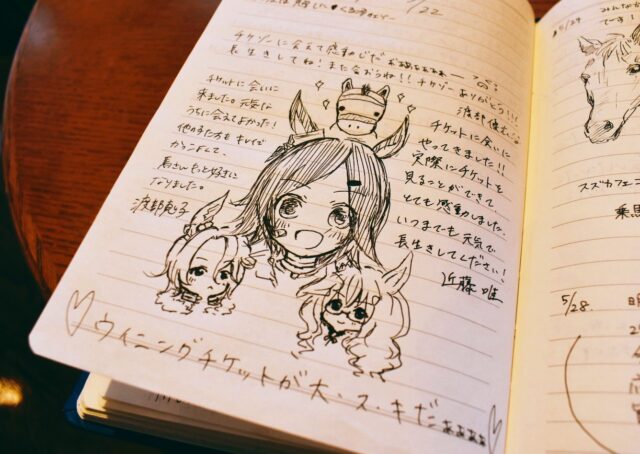 くさずに
/22
チケゾーに会えて感動しだおぁぁぁぁぁー
長生きしてね!また会おうね!!チケゾーありがとう!!!
チケットに会いに
来ました。元気な
うちに会えてよかった!
他の子たちもキレイで
かっこよくて、
馬さんもっと好きに
なりました。
チケットに会いに
やってきました!!
実際にチケットを
見ることができて、
とても感動しました。
いつまでも元気で
長生きしてください!
近藤 唯
ウイニングチケットが大・ス・キだぁぁぁぁ
みんな
5/29
スズカフェニ
乗馬
5/28.